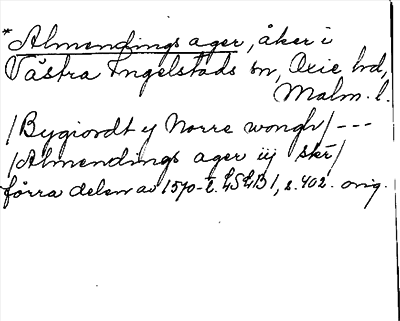 *Almendings ager, åker i
Västra Ingelstads sn, Oxie hd,
Malm. l.
/Bygiordt ij Norre wongh/---
/Almendings ager iij skr/
förra delen av 1570-t. LSLB 1, s. 402. orig.